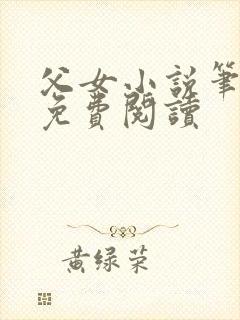 父女小说筆
免費閱讀
黄绿荣